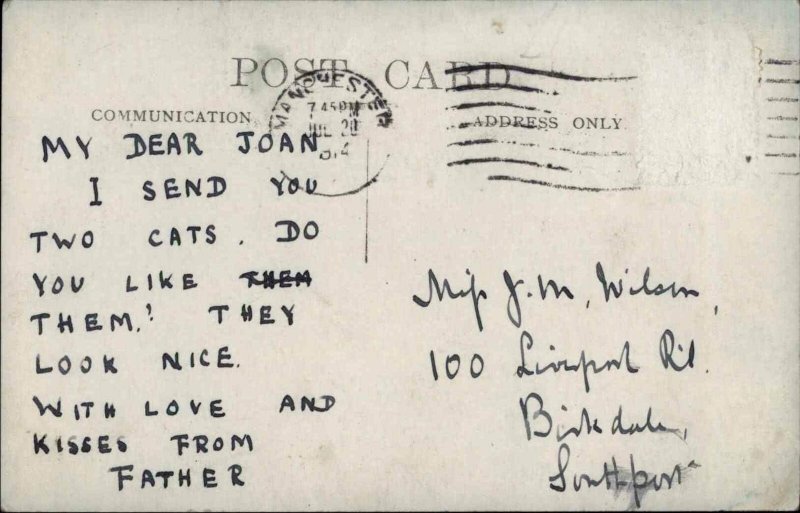 POST CARD
COMMUNICATION
ADDRESS ONLY
MANCHESTER
7.45 PM
JUL 20
MY DEAR JOAN
I SEND YOU
TWO CATS. DO
YOU LIKE THEM
THEM? THEY
LOOK NICE.
WITH LOVE AND
KISSES FROM
FATHER
Miss J. M. Wilson,
100 Liverpool Rd.
Birkdale,
Southport